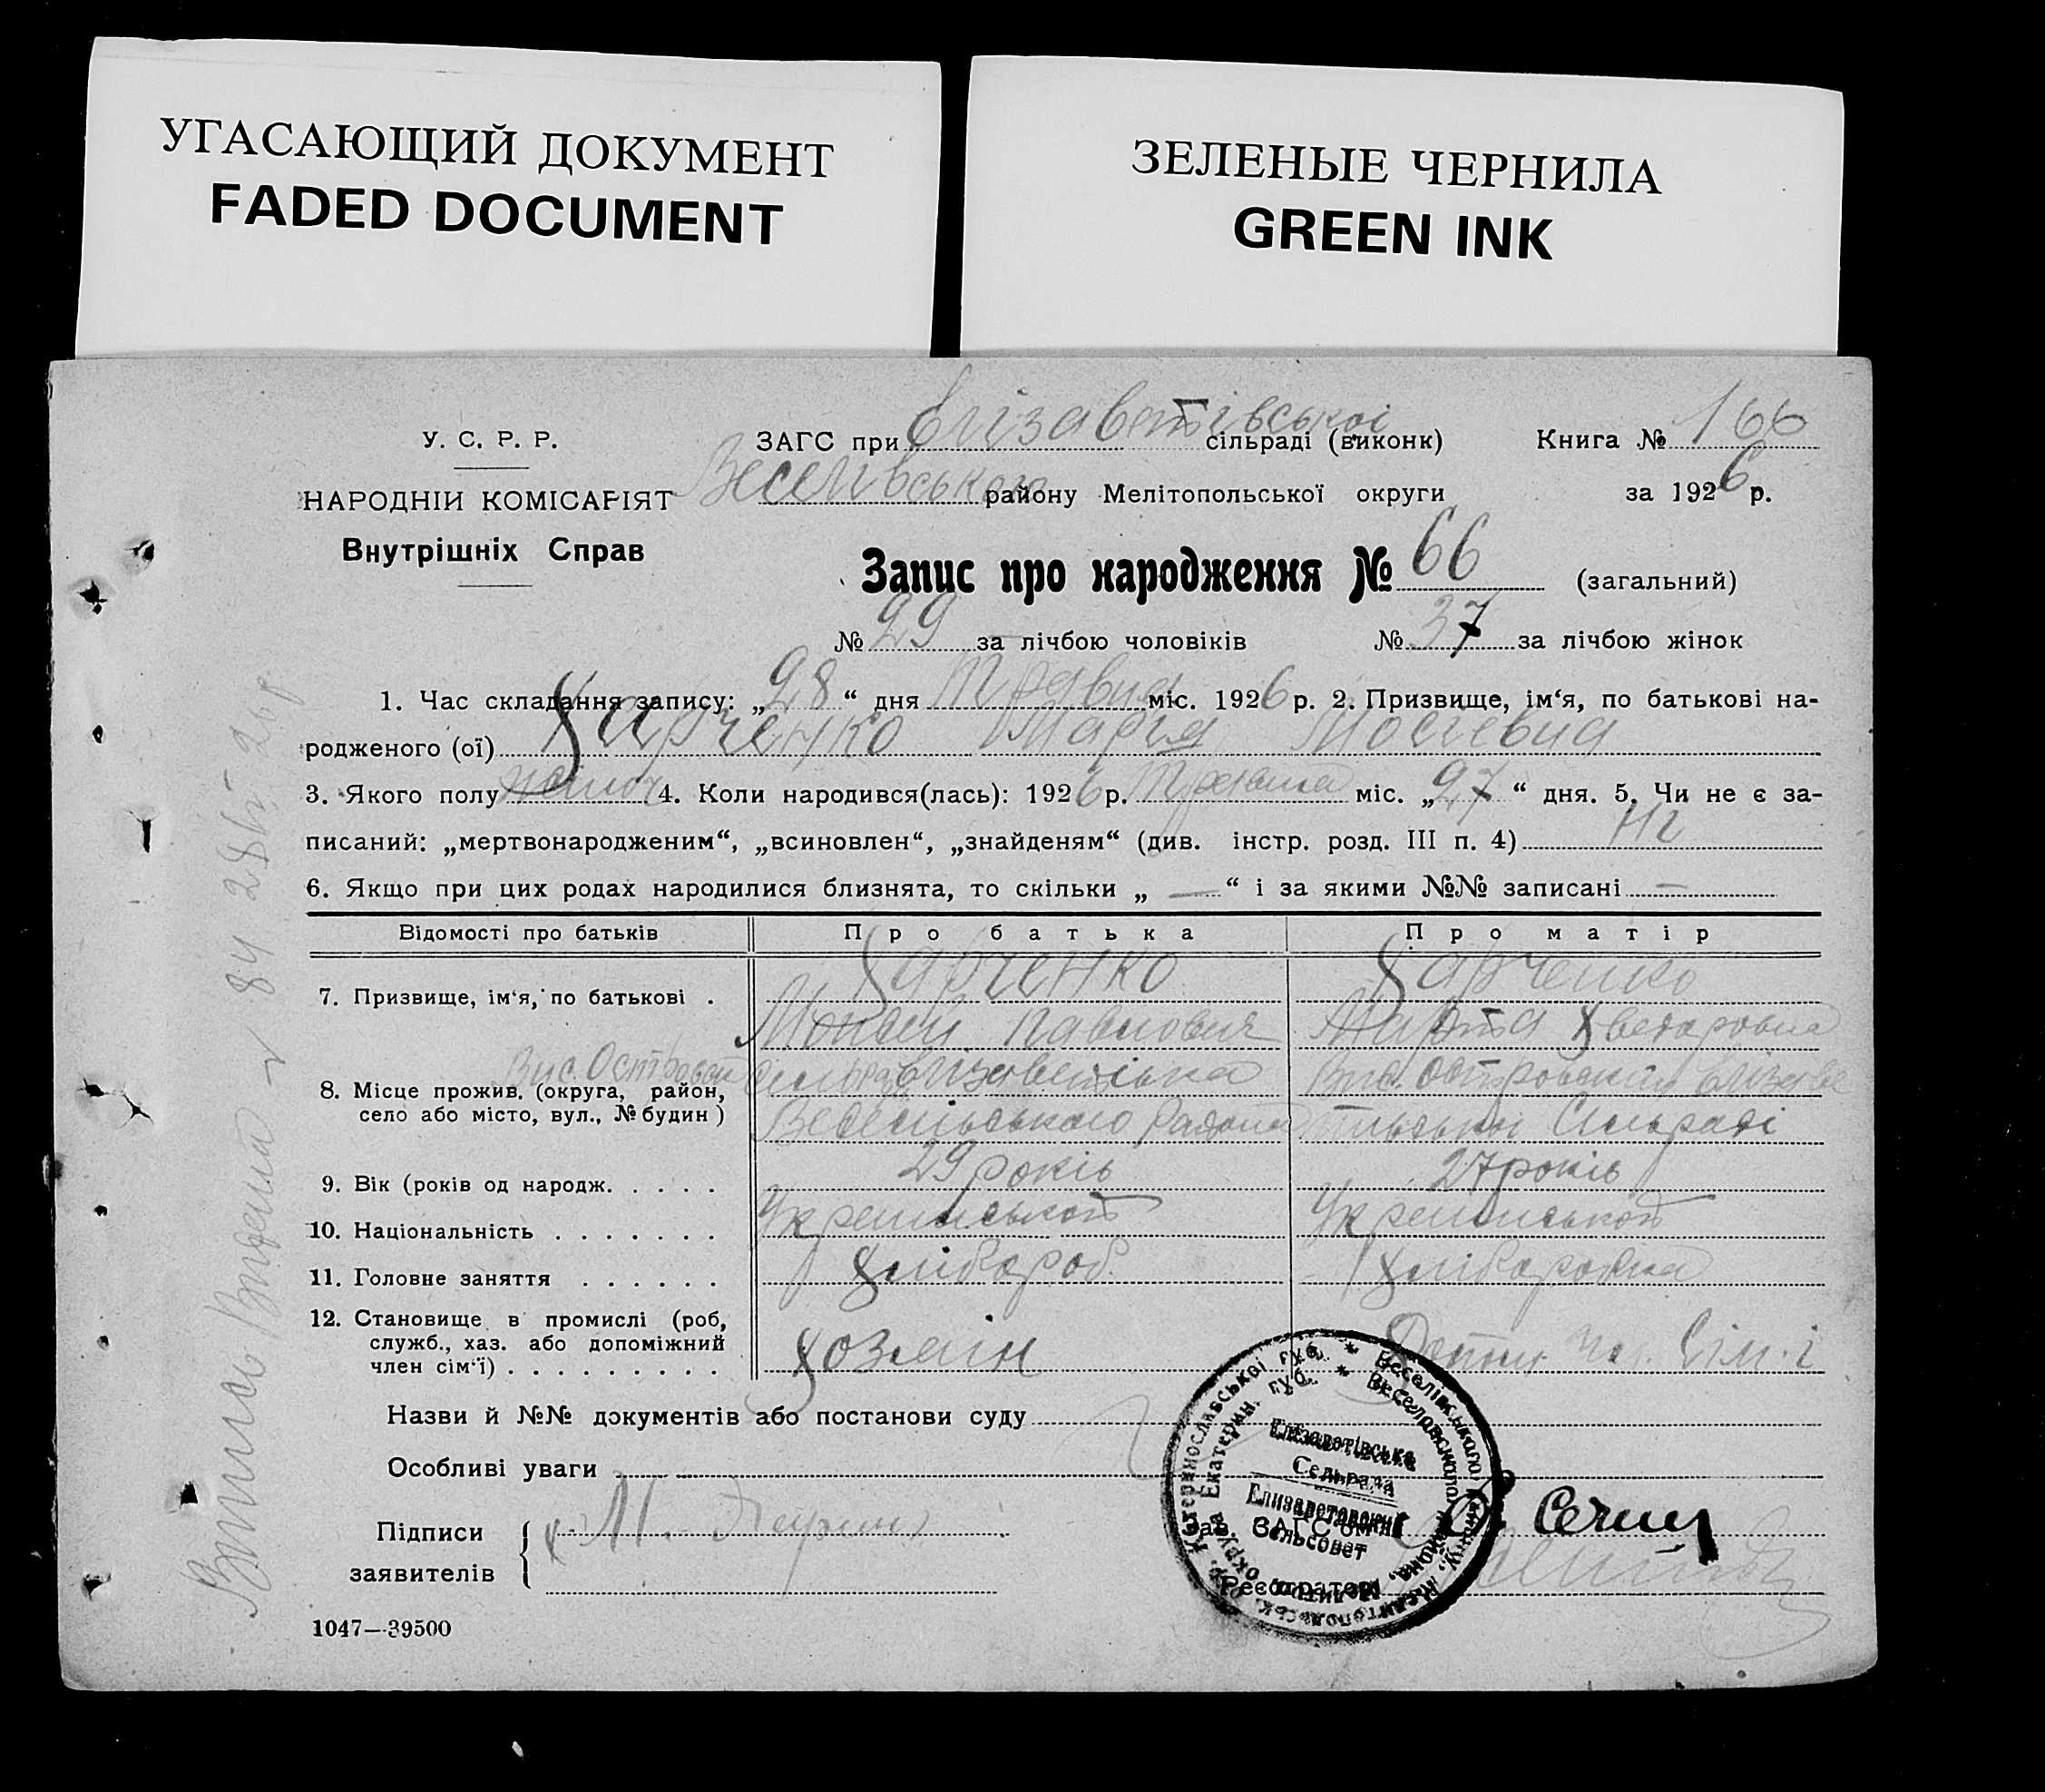 УГАСАЮЩИЙ ДОКУМЕНТ
FADED DOCUMENT
ЗЕЛЕНЫЕ ЧЕРНИЛА
GREEN INK
У. С. Р. Р.
НАРОДНІИ КОМІСАРІЯТ
Внутрішніх Справ
ЗАГС при Єлізаветівської сільраді (виконк) Книга № 166
Веселівського району Мелітопольської округи за 1926 р.
Запис про народження № 66 (загальний)
№ 29 за лічбою чоловіків № 37 за лічбою жінок
1. Час складання запису: „28“ дня Травня міс. 1926 р. 2. Призвище, ім‘я, по батькові на-
родженого (ої) Харченко Марія Мосіевна
3. Якого полу жіноч 4. Коли народився(лась): 1926 р. Травня міс. „27“ дня. 5. Чи не є за-
писаний: „мертвонародженим“, „всиновлен“, „знайденям“ (див. інстр. розд. III п. 4) Ні
6. Якщо при цих родах народилися близнята, то скільки „ — “ і за якими №№ записані —
Відомості про батьків Про батька Про матір
7. Призвище, ім‘я, по батькові . Харченко Харченко
Мойсей Павлович Марта Хведоровна
8. Місце прожив. (округа, район,
село або місто, вул., № будин )
Веселівського Району Сільраді
9. Вік (років од народж. . . . . 29 років 27 років
10. Національність . . . . . . .
11. Головне заняття . . . . . . Хлібороб. Хліборобка
12. Становище в промислі (роб,
служб., хаз. або допоміжний
член сім‘ї) . . . . . . . . . Хозяін Допом. чл. Сім.ї
Назви й №№ документів або постанови суду
Особливі уваги
Підписи
заявителів
Зав. ЗАГС‘ом
Реєстратор
Єлізаветівська
Сельрада
Елизаветовский
Сельсовет
1047—39500